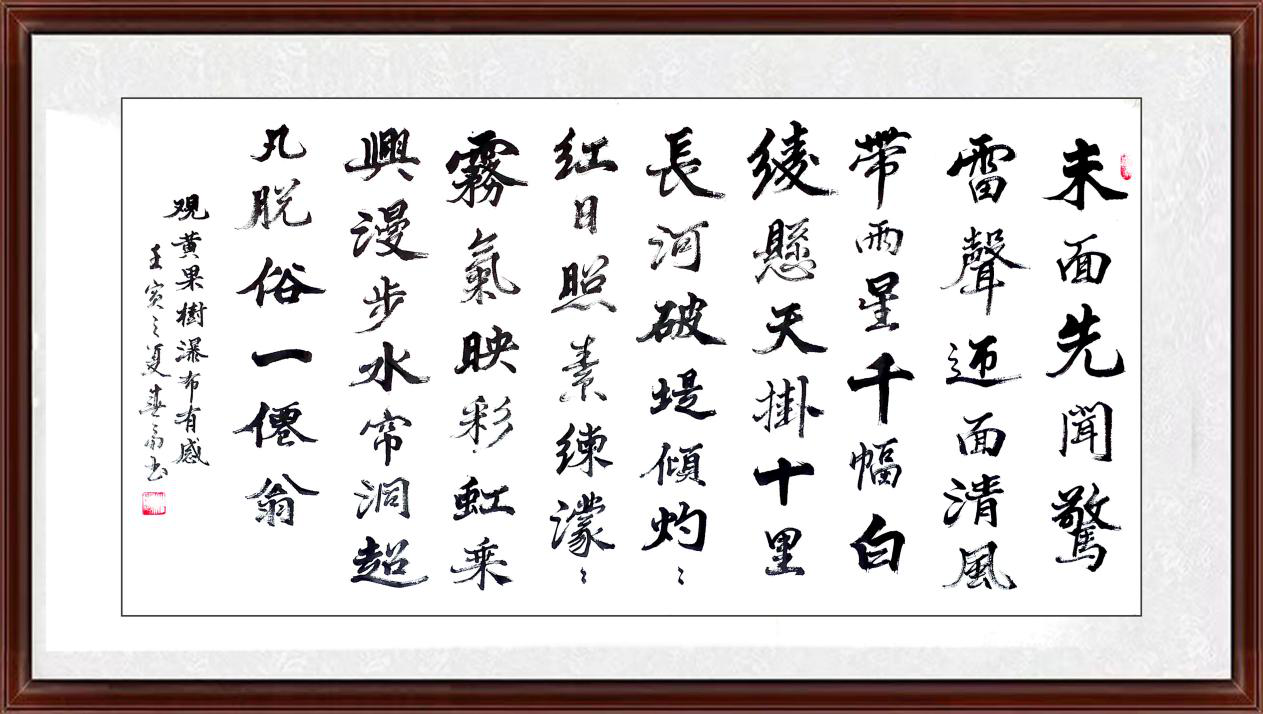 未面先聞驚
雷聲迎面清風
帶雨星千幅白
绫懸天掛十里
長河破堤傾灼〻
红日照素練濛〻
霧氣映彩虹乘
興漫步水帘洞超
凡脱俗一僊翁
观黄果樹瀑布有感
壬寅之夏春帚书